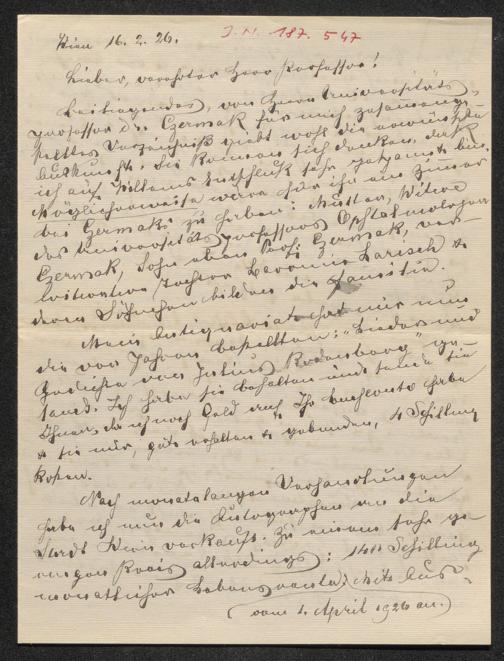 Wien 16. 2. 26.
I. N. 187. 547
Lieber, verehrter Herr Professor!
Beiliegendes, von Herrn Universitäts
professor Dr. Czermak für mich zusammenge-
stelltes Verzeichniß giebt wohl die erwünschte
Auskunft. Sie können sich denken, daß
ich auf Entschluß sehr gespannt bin.
Möglicherweise wäre für ihn ein Zimmer
bei Czermaks zu haben: Mutter, Witwe
des Universitätsprofessors Ophtalmologen
Czermak, Sohn eben Prof. Czermak, ver-
Tochter Baronin Larisch &
deren Söhnchen bilden die Familie.
Mein Antiquariat hat mir nun
die vor Jahren bestellten: "Lieder und
Gedichte von Julius Rodenberg" ge-
sandt. Ich habe sie behalten und sende sie
Ihnen, da ich noch Geld auf Ihr Buchkonto habe
& sie nur, gut erhalten & gebunden, 4 Schilling
kosten.
Nach monatelangen Verhandlungen
habe ich nun die Autographen an die
Stadt Wien verkauft. Zu einem sehr ge-
ringen Preis allerdings: Schilling
monatlicher Lebensrente mit Aus-
(vom 1. April 1926 an.)